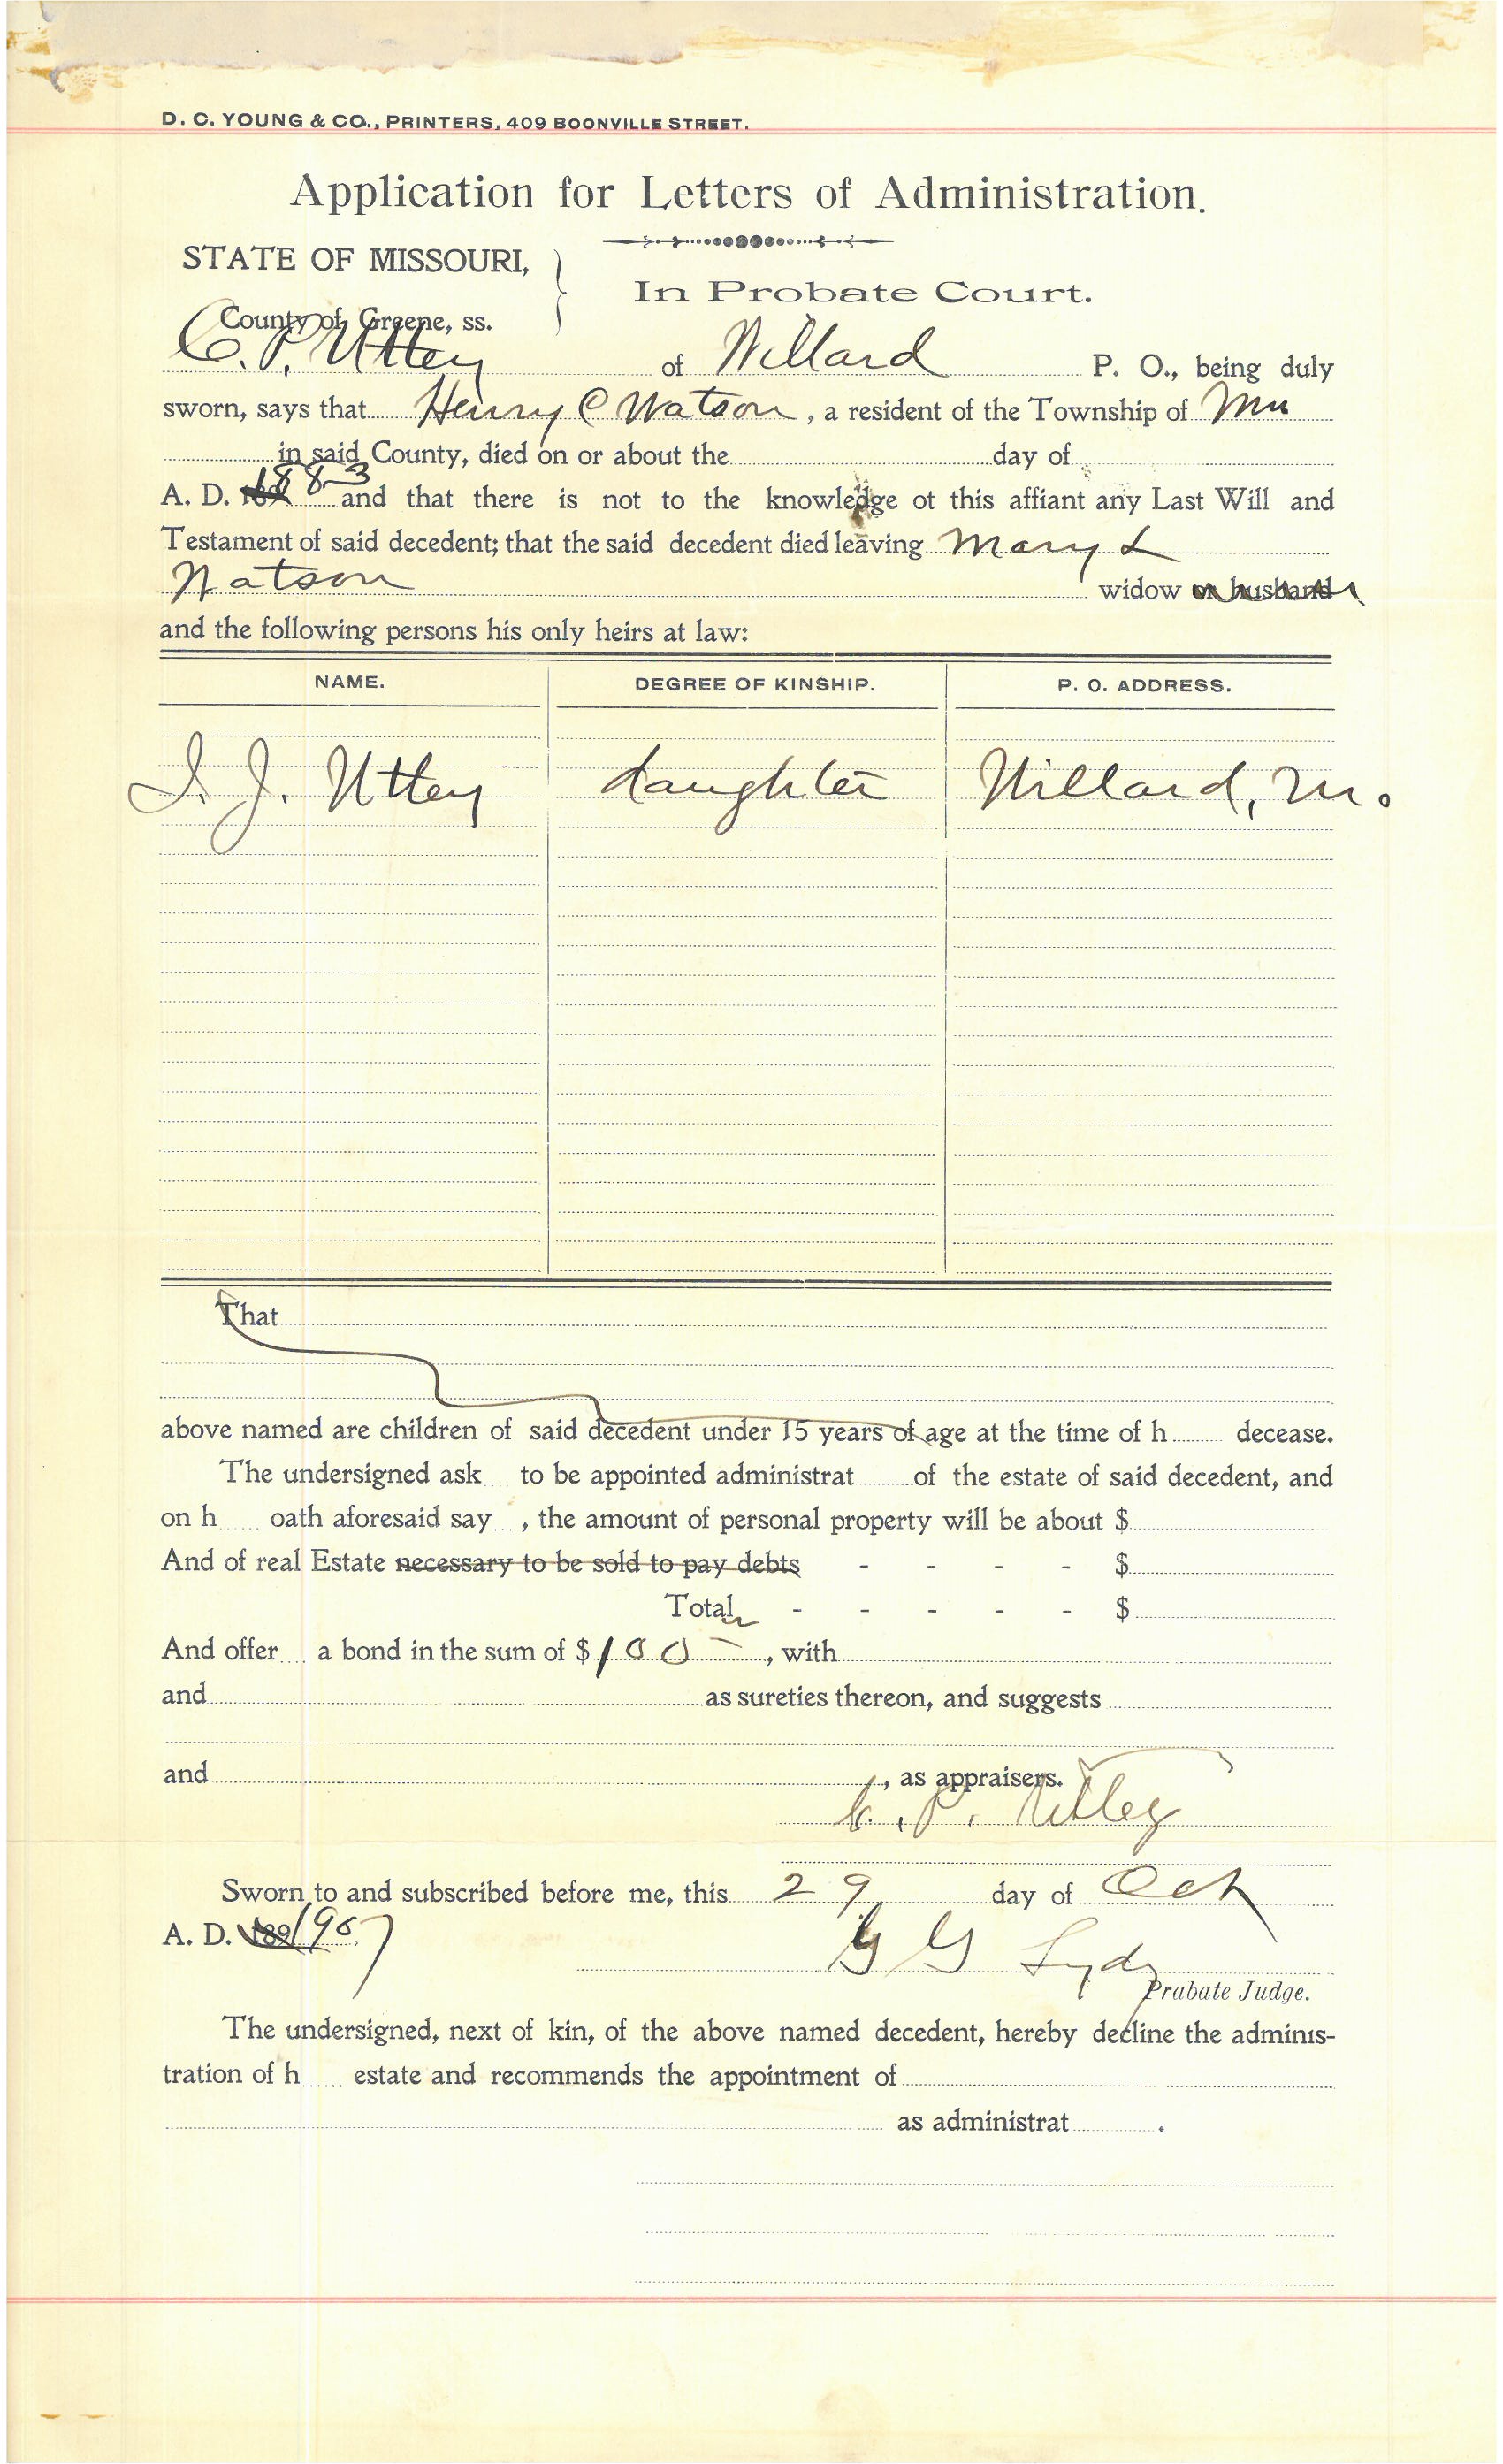 D. C. YOUNG & CO., PRINTERS, 409 BOONVILLE STREET.
Application for Letters of Administration.
STATE OF MISSOURI,
County of Greene, ss.
In Probate Court.
C. P. Utley of Willard P. O., being duly
sworn, says that Henry C Watson, a resident of the Township of
in said County, died on or about the day of
A. D. 189 1883 and that there is not to the knowledge ot this affiant any Last Will and
Testament of said decedent; that the said decedent died leaving Mary L
Watson widow or husband
and the following persons his only heirs at law:
NAME. DEGREE OF KINSHIP. P. O. ADDRESS.
I. J. Utley daughter Willard, Mo.
That
above named are children of said decedent under 15 years of age at the time of h decease.
The undersigned ask to be appointed administrat of the estate of said decedent, and
on h oath aforesaid say , the amount of personal property will be about $
And of real Estate necessary to be sold to pay debts - - - - $
Total - - - - - $
And offer a bond in the sum of $100 —, with
and as sureties thereon, and suggests
and , as appraisers.
C. P. Utley
Sworn to and subscribed before me, this 29 day of Oct
A. D. 189 1907
G G Lydy
Prabate Judge.
The undersigned, next of kin, of the above named decedent, hereby decline the adminis-
tration of h estate and recommends the appointment of
as administrat .